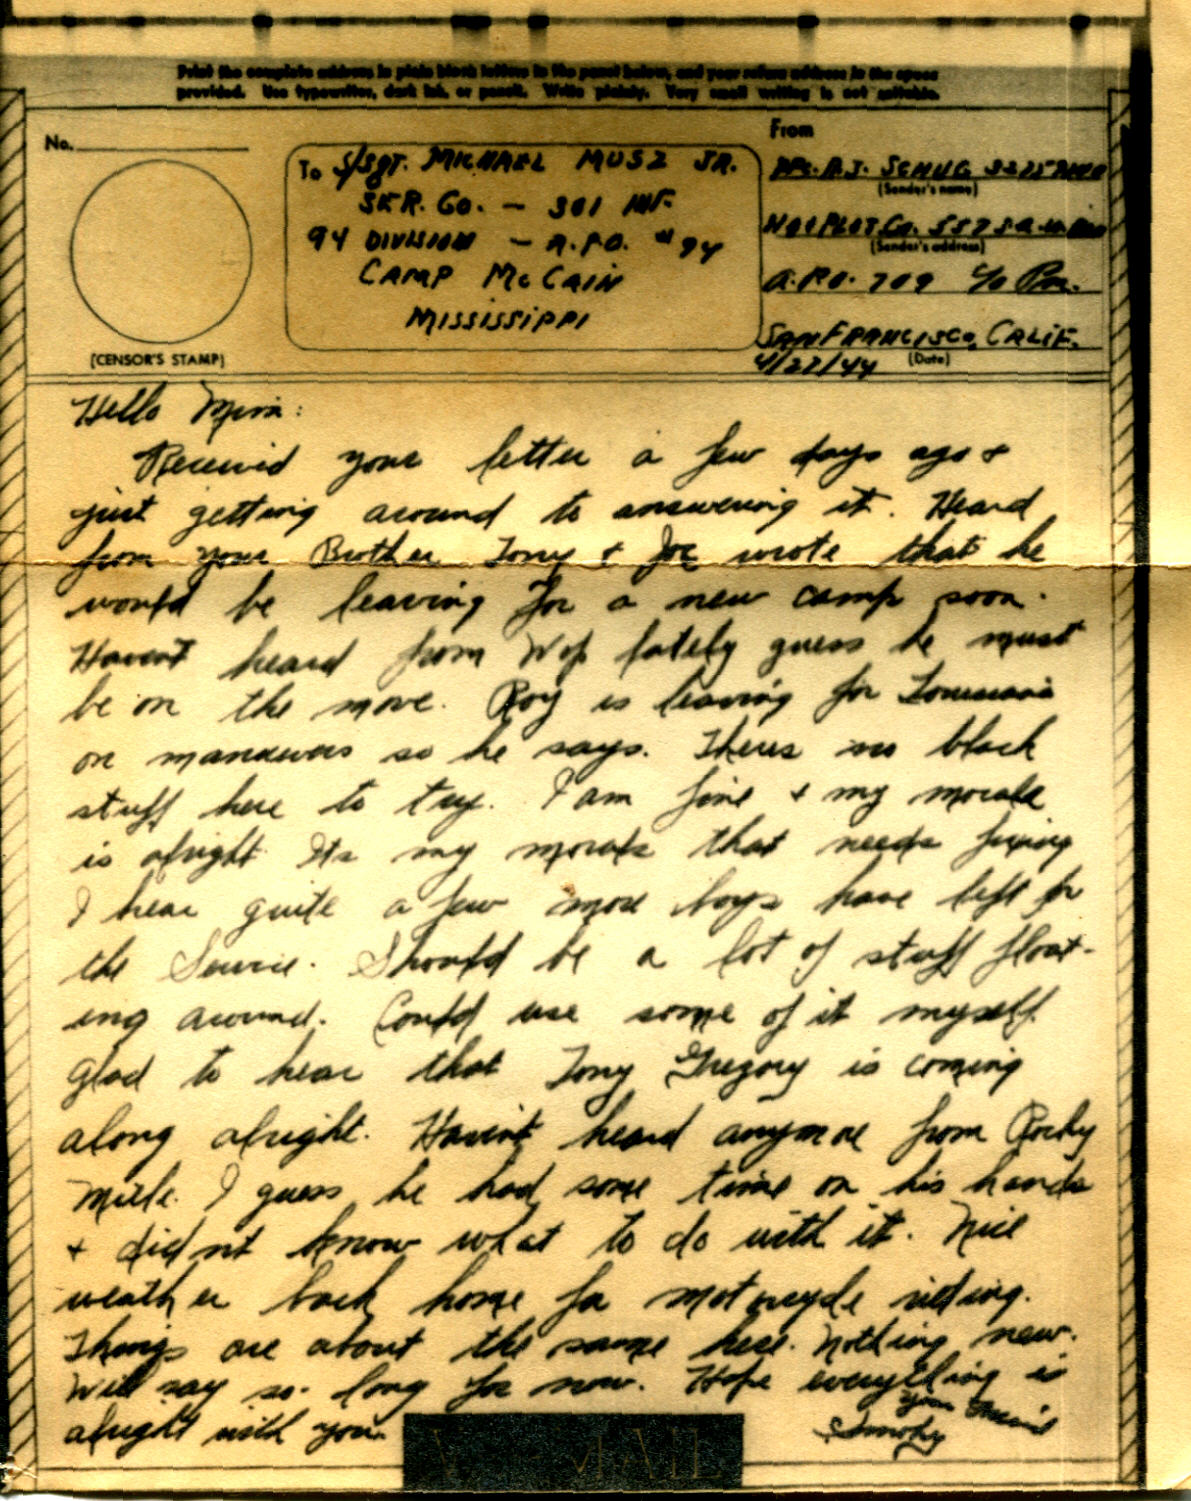 Print the complete address in plain block letters in the panel below, and your return address in the space
provided. Use typewriter, dark ink, or pencil. Write plainly. Very small writing is not suitable.
No.
From
To S/Sgt. MICHAEL MUSZ JR.
SER. Co. - 301 INF.
94 DIVISION - A.P.O. #94
CAMP McCAIN
MISSISSIPPI
(CENSOR'S STAMP)
Pfc. A.J. SCHUG
(Sender's name)
(Sender's address)
A.P.O. 709 c/o Pm.
SAN FRANCISCO, CALIF.
4/27/44 (Date)
Hello
Received your letter a few days ago +
just getting around to answering it. Heard
from your Brother Tony + Joe wrote that he
would be leaving for a new camp soon.
Havent heard from Wop lately guess he must
be on the move. Roy is leaving for Louisiana
on manuvers so he says. Theres no black
stuff here to try. I am fine + my morale
is alright Its my morals that needs fixing
I hear quite a few more boys have left for
the Service. Should be a lot of stuff float-
ing around. Could use some of it myself.
Glad to hear that Tony Gregory is coming
along alright. Havent heard anymore from Rocky
I guess he had some time on his hands
+ didnt know what to do with it. Nice
weather back home for motorcycle riding.
Things are about the same here. Nothing new.
Will say so-long for now. Hope everything is
alright with you.
Your Friend
Smoky
V-MAIL